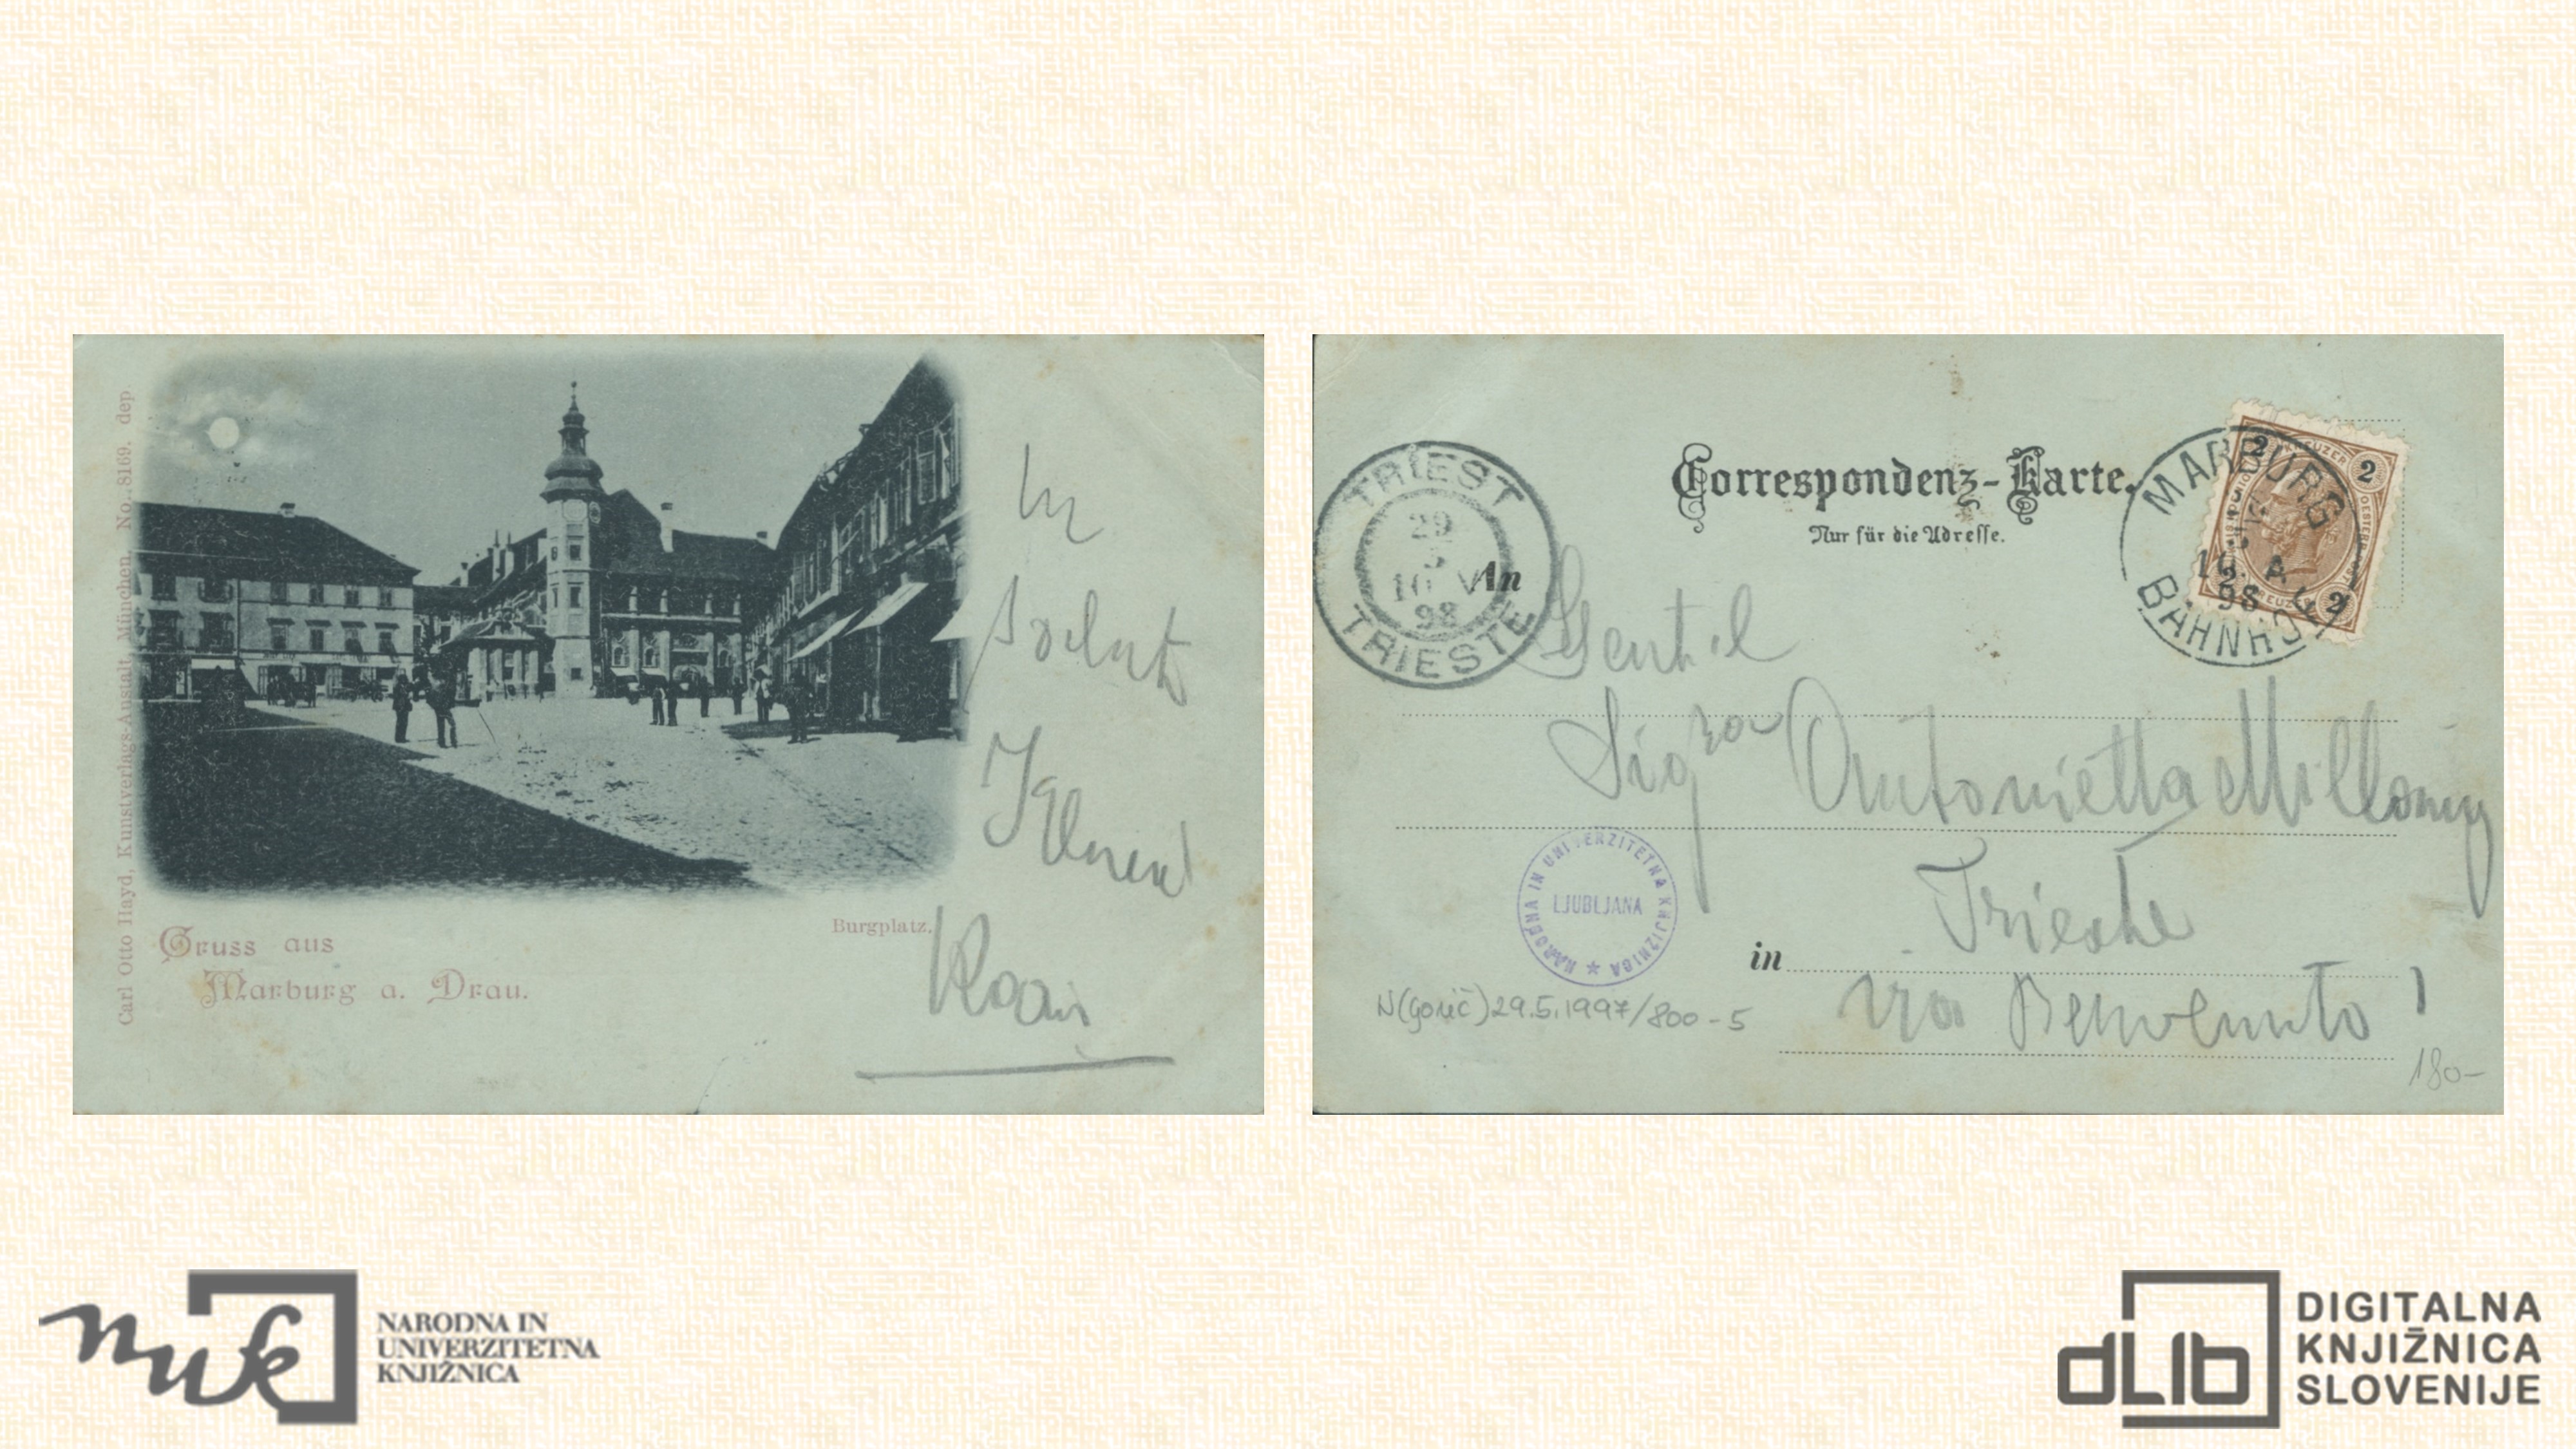 Carl Otto Hayd, Kunstverlags-Anstalt, München. No. 8169. dep
Un
saluto
Gruss aus
Marburg a. Drau.
Burgplatz.
Correspondenz-Karte.
Nur für die Adresse.
An
TRIEST
29
5
98
TRIESTE
MARBURG
98
BAHNHOF
2
2
2
Gentil
Sigra Antonietta
in Trieste
via Benvenuto
1
NARODNA IN UNIVERZITETNA KNJIŽNICA
LJUBLJANA
N(Gorič)29.5.1997/800-5
180-
nuk
NARODNA IN
UNIVERZITETNA
KNJIŽNICA
dLib
DIGITALNA
KNJIŽNICA
SLOVENIJE